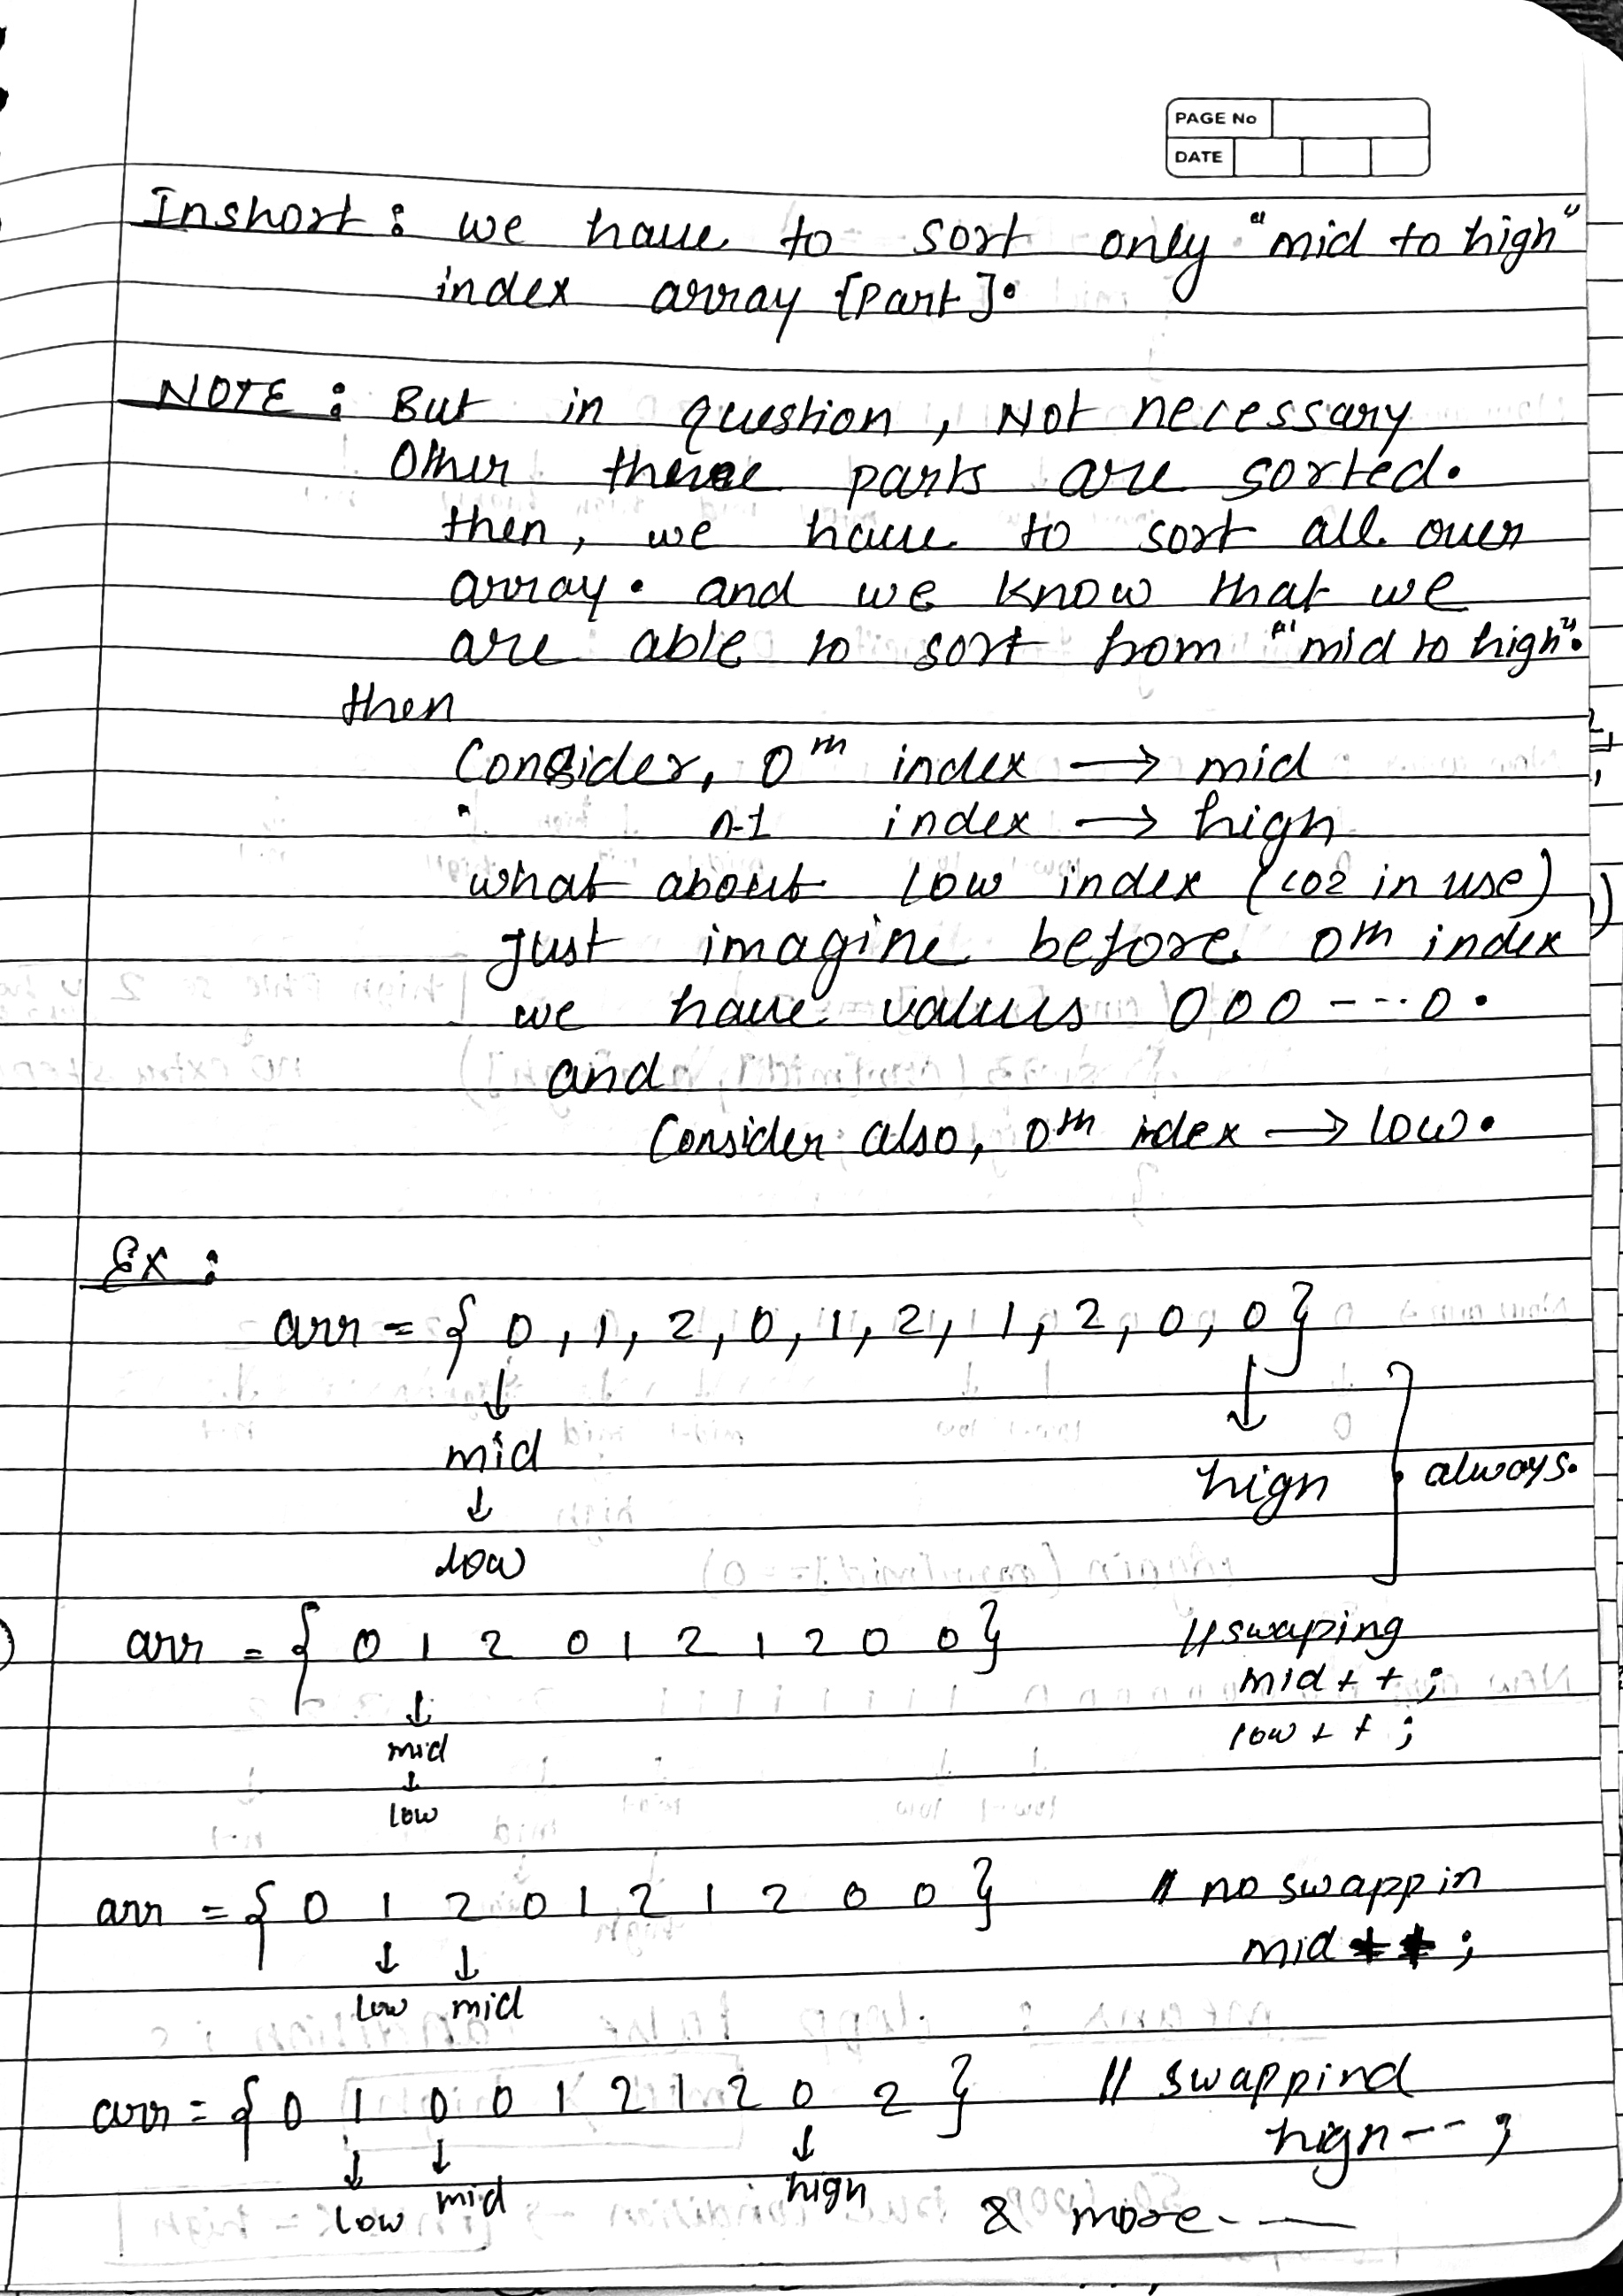 PAGE No
DATE
Inshort : we have to sort only "mid to high"
index array [Part].
NOTE : But in question, Not necessary
Other three parts are sorted.
then, we have to sort all over
array. and we know that we
are able to sort from "mid to high".
then
Consider, 0th index → mid
n-1 index → high
what about low index (coz in use)
Just imagine before 0th index
we have values 000 ---- 0.
and
Consider also, 0th idex → low.
Ex :
arr = { 0, 1, 2, 0, 1, 2, 1, 2, 0, 0 }
↓ ↓
mid hign always.
↓
low
arr = { 0 1 2 0 1 2 1 2 0 0 } // swaping
↓ mid++;
mid low++;
↓
low
arr = { 0 1 2 0 1 2 1 2 0 0 } // no swappin
↓ ↓ mid++;
low mid
arr = { 0 1 0 0 1 2 1 2 0 2 } // swappind
↓ ↓ ↓ hign--;
low mid high
& more----